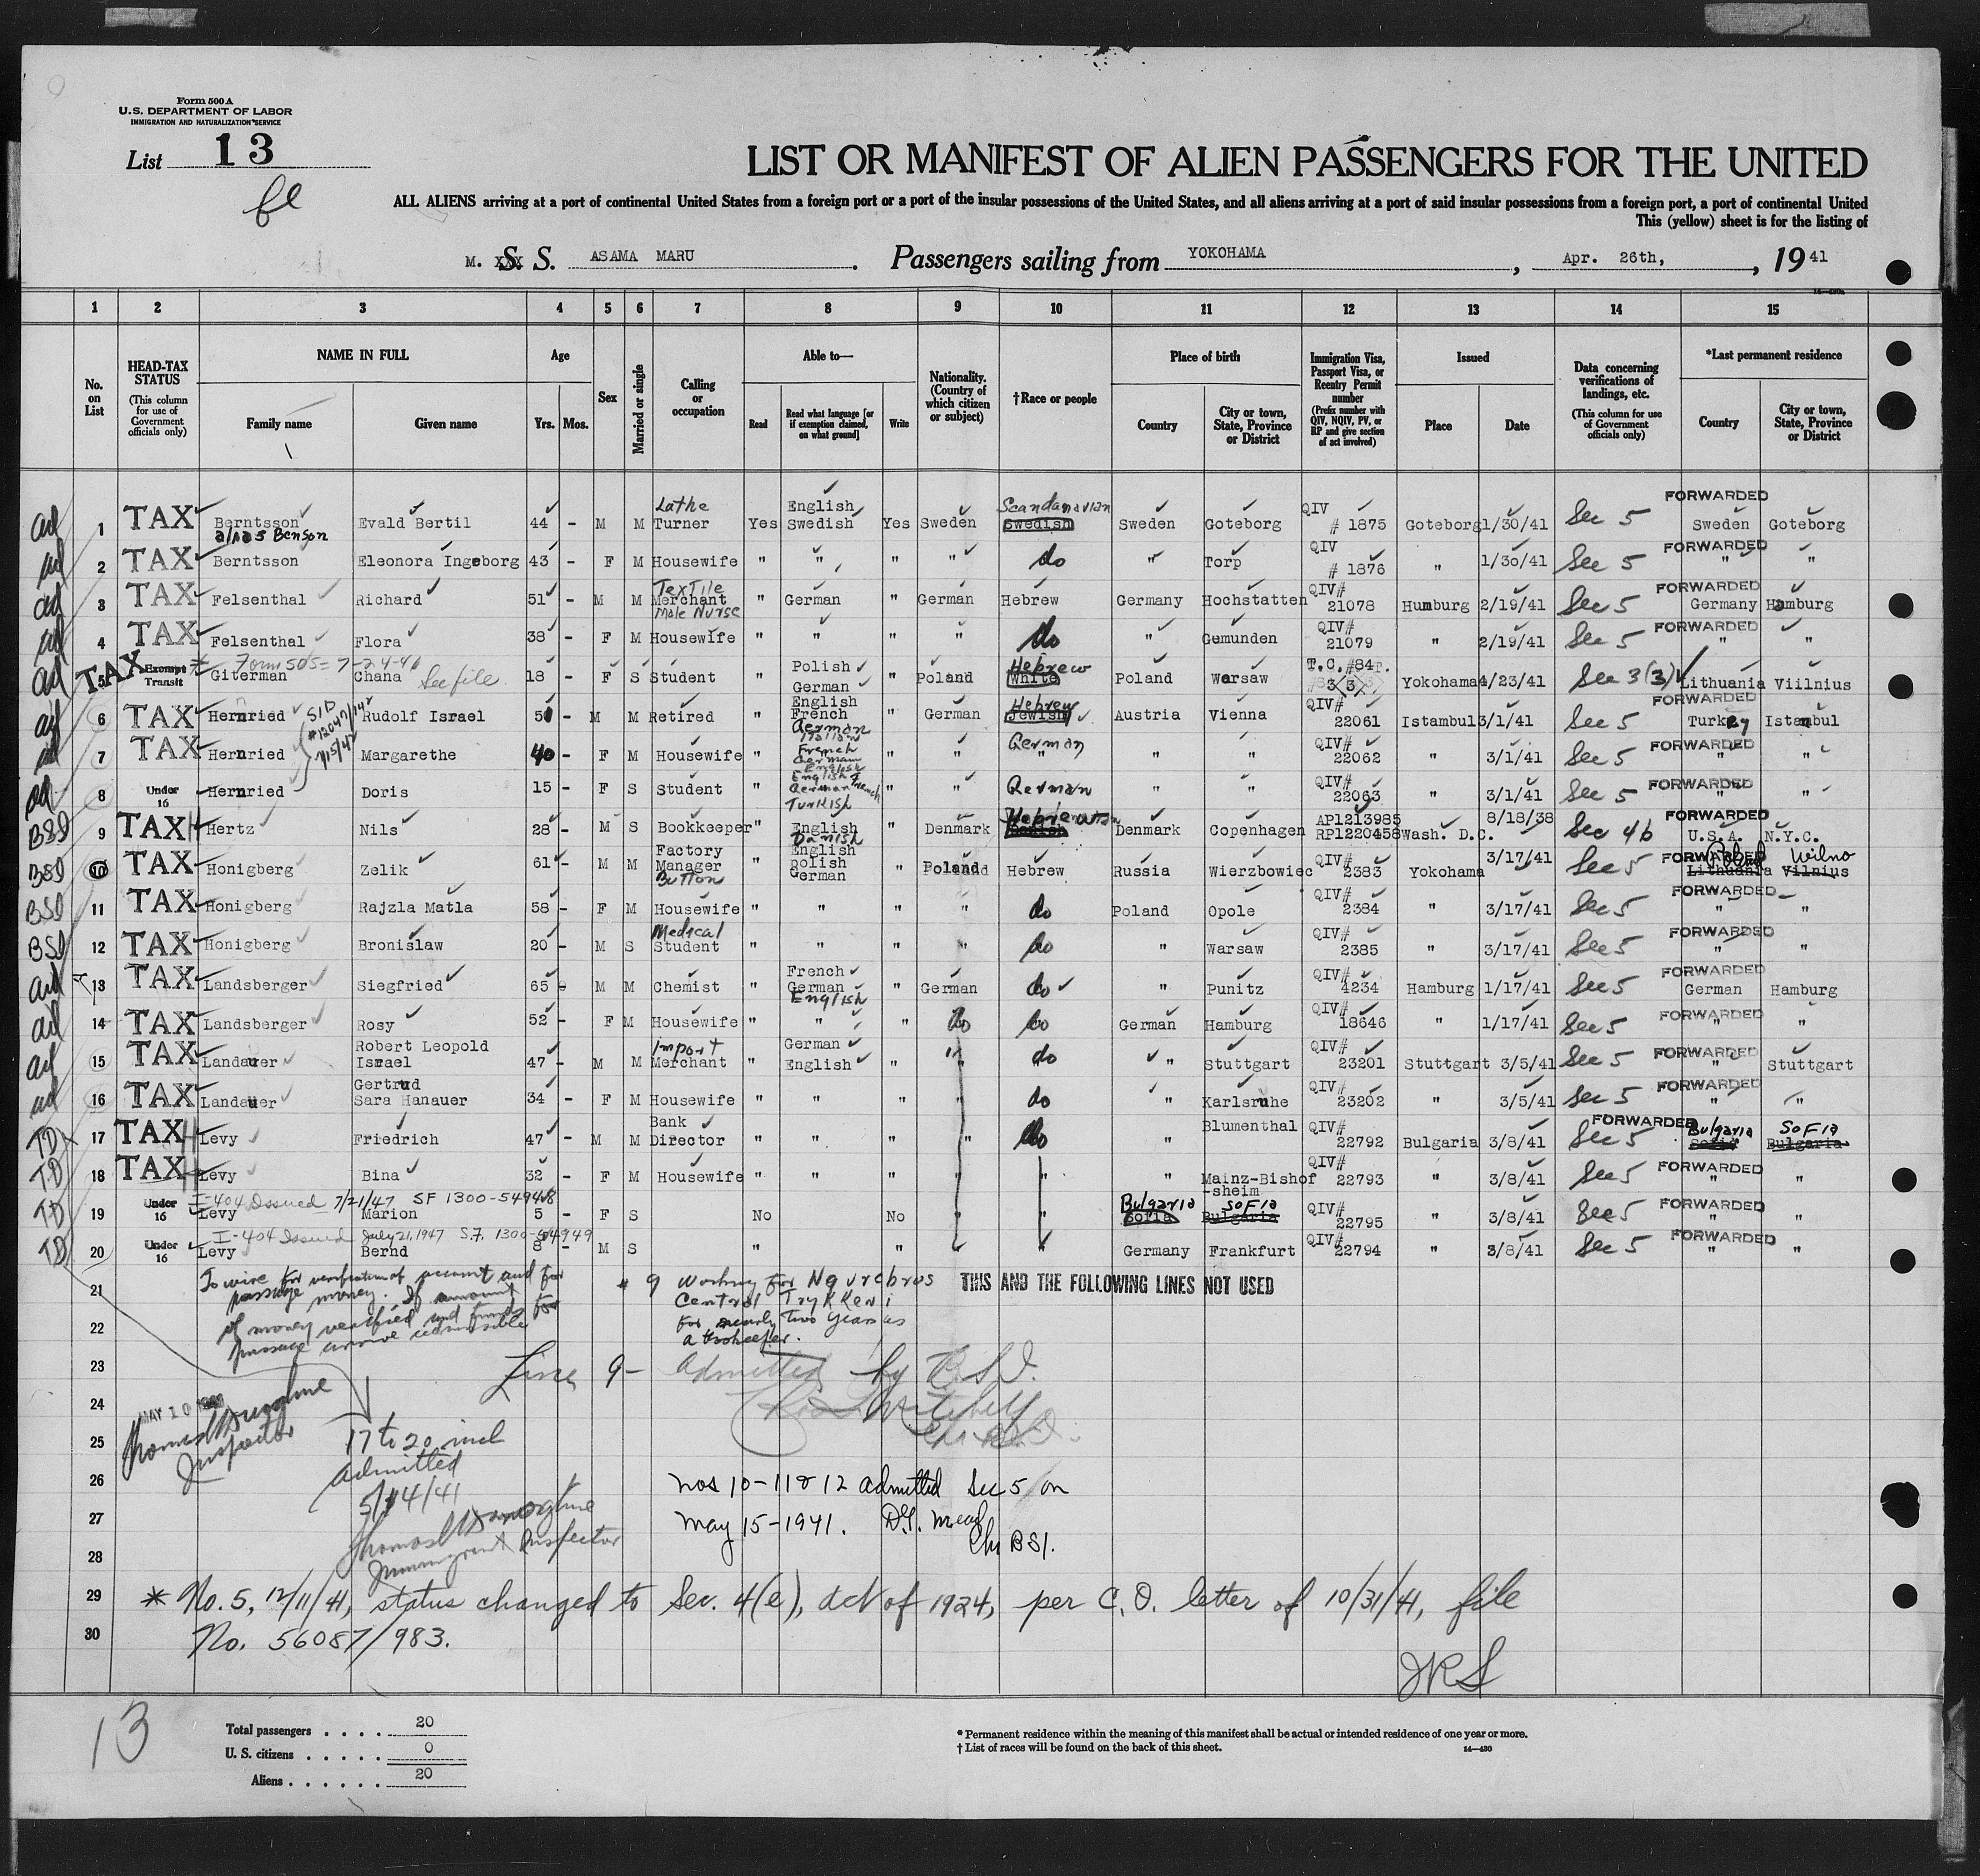 Form 500 A
U.S. DEPARTMENT OF LABOR
IMMIGRATION AND NATURALIZATION SERVICE
List 13
LIST OR MANIFEST OF ALIEN PASSENGERS FOR THE UNITED
ALL ALIENS arriving at a port of continental United States from a foreign port or a port of the insular possessions of the United States, and all aliens arriving at a port of said insular possessions from a foreign port, a port of continental United
This (yellow) sheet is for the listing of
M. XXX S. S. ASAMA MARU. Passengers sailing from YOKOHAMA, Apr. 26th, 1941
1 2 3 4 5 6 7 8 9 10 11 12 13 14 15
No. on List
HEAD-TAX STATUS (This column for use of Government officials only)
NAME IN FULL Family name Given name
Age Yrs. Mos.
Sex
Married or single
Calling or occupation
Able to— Read Read what language [or if exemption claimed, on what ground] Write
Nationality. (Country of which citizen or subject)
†Race or people
Place of birth Country City or town, State, Province or District
Immigration Visa, Passport Visa, or Reentry Permit number (Prefix number with QIV, NQIV, PV, or RP and give section of act involved)
Issued Place Date
Data concerning verifications of landings, etc. (This column for use of Government officials only)
*Last permanent residence Country City or town, State, Province or District
ad 1 TAX Berntsson alias Benson Evald Bertil 44 - M M Lathe Turner Yes English Swedish Yes Sweden Scandanavian Swedish Sweden Goteborg QIV # 1875 Goteborg 1/30/41 Sec 5 FORWARDED Sweden Goteborg
ad 2 TAX Berntsson Eleonora Ingeborg 43 - F M Housewife " " " " do " Torp QIV # 1876 " 1/30/41 Sec 5 FORWARDED " "
ad 3 TAX Felsenthal Richard 51 - M M Textile Merchant Male Nurse " German " German Hebrew Germany Hochstatten QIV# 21078 Humburg 2/19/41 Sec 5 FORWARDED Germany Hamburg
ad 4 TAX Felsenthal Flora 38 - F M Housewife " " " " do " Gemunden QIV# 21079 " 2/19/41 Sec 5 FORWARDED " "
ad 5 TAX Exempt Transit Form 505 = 7-24-41 Giterman Chana See file 18 - F S Student " Polish German " Poland Hebrew White Poland Warsaw T.C. #84 Yokohama 4/23/41 Sec 3(3) Lithuania Viilnius
ad 6 TAX Hernried Rudolf Israel 51 - M M Retired " English French German " German Hebrew Jewish Austria Vienna QIV# 22061 Istambul 3/1/41 Sec 5 FORWARDED Turkey Istanbul
ad 7 TAX Hernried Margarethe 40 - F M Housewife " Italian French German English " " German " " " QIV# 22062 " 3/1/41 Sec 5 FORWARDED " "
ad 8 Under 16 Hernried Doris 15 - F S Student " English French German Turkish " " German " " QIV# 22063 " 3/1/41 Sec 5 FORWARDED " "
BSI 9 TAX Hertz Nils 28 - M S Bookkeeper " English Danish " Denmark Denmark Copenhagen AP1213985 RP1220458 Wash. D.C. 8/18/38 Sec 4b FORWARDED U.S.A. N.Y.C.
BSI 10 TAX Honigberg Zelik 61 - M M Factory Manager Button " English polish German " Poland Hebrew Russia Wierzbowiec QIV# 2383 Yokohama 3/17/41 Sec 5 FORWARDED Poland Wilno Lithuania Vilnius
BSI 11 TAX Honigberg Rajzla Matla 58 - F M Housewife " " " " do Poland Opole QIV# 2384 " 3/17/41 Sec 5 FORWARDED " "
BSI 12 TAX Honigberg Bronislaw 20 - M S Medical Student " " " " do " Warsaw QIV# 2385 " 3/17/41 Sec 5 FORWARDED " "
ad 13 TAX Landsberger Siegfried 65 M M Chemist " French German English " German do " Punitz QIV# 4234 Hamburg 1/17/41 Sec 5 FORWARDED German Hamburg
ad 14 TAX Landsberger Rosy 52 - F M Housewife " " " do do German Hamburg QIV# 18646 " 1/17/41 Sec 5 FORWARDED " "
ad 15 TAX Landauer Robert Leopold Israel 47 - M M Import Merchant " German English " " do " Stuttgart QIV# 23201 Stuttgart 3/5/41 Sec 5 FORWARDED " Stuttgart
ad 16 TAX Landauer Gertrud Sara Hanauer 34 - F M Housewife " " " " do " Karlsruhe QIV# 23202 " 3/5/41 Sec 5 FORWARDED " "
TD 17 TAX Levy Friedrich 47 - M M Bank Director " " " " do " Blumenthal QIV# 22792 Bulgaria 3/8/41 Sec 5 FORWARDED Bulgaria Sofia Sofia Bulgaria
TD 18 TAX Levy Bina 32 - F M Housewife " " " " " " Mainz-Bishofsheim QIV# 22793 " 3/8/41 Sec 5 FORWARDED " "
I-404 Issued 7/21/47 SF 1300-54948
TD 19 Under 16 Levy Marion 5 - F S No No " " Bulgaria Sofia Sofia Bulgaria QIV# 22795 " 3/8/41 Sec 5 FORWARDED " "
I-404 Issued July 21, 1947 S.F. 1300-54949
TD 20 Under 16 Levy Bernd 8 - M S " " " " Germany Frankfurt QIV# 22794 " 3/8/41 Sec 5 FORWARDED " "
21 To wire for verification of account and for
passage money. If amount
22 of money verified and funds for
passage arrive admissible
# 9 Working for
Central Trykkeri
for nearly Two years as
a bookeeper.
THIS AND THE FOLLOWING LINES NOT USED
23 Line 9 - Admitted by B.S.I.
24 MAY 10
Inspector
25 17 to 20 incl
admitted
5/14/41
Immigrant Inspector
26 Nos 10-11 & 12 admitted Sec 5 on
27 May 15-1941. D.G. Mead
28 Chr BSI.
29 * No. 5, 12/11/41, status changed to Sec. 4(e), Act of 1924, per C.O. letter of 10/31/41, file
30 No. 56087/983.
JRS
13
Total passengers . . . . 20
U. S. citizens . . . . . 0
Aliens . . . . . . 20
* Permanent residence within the meaning of this manifest shall be actual or intended residence of one year or more.
† List of races will be found on the back of this sheet.
14—430